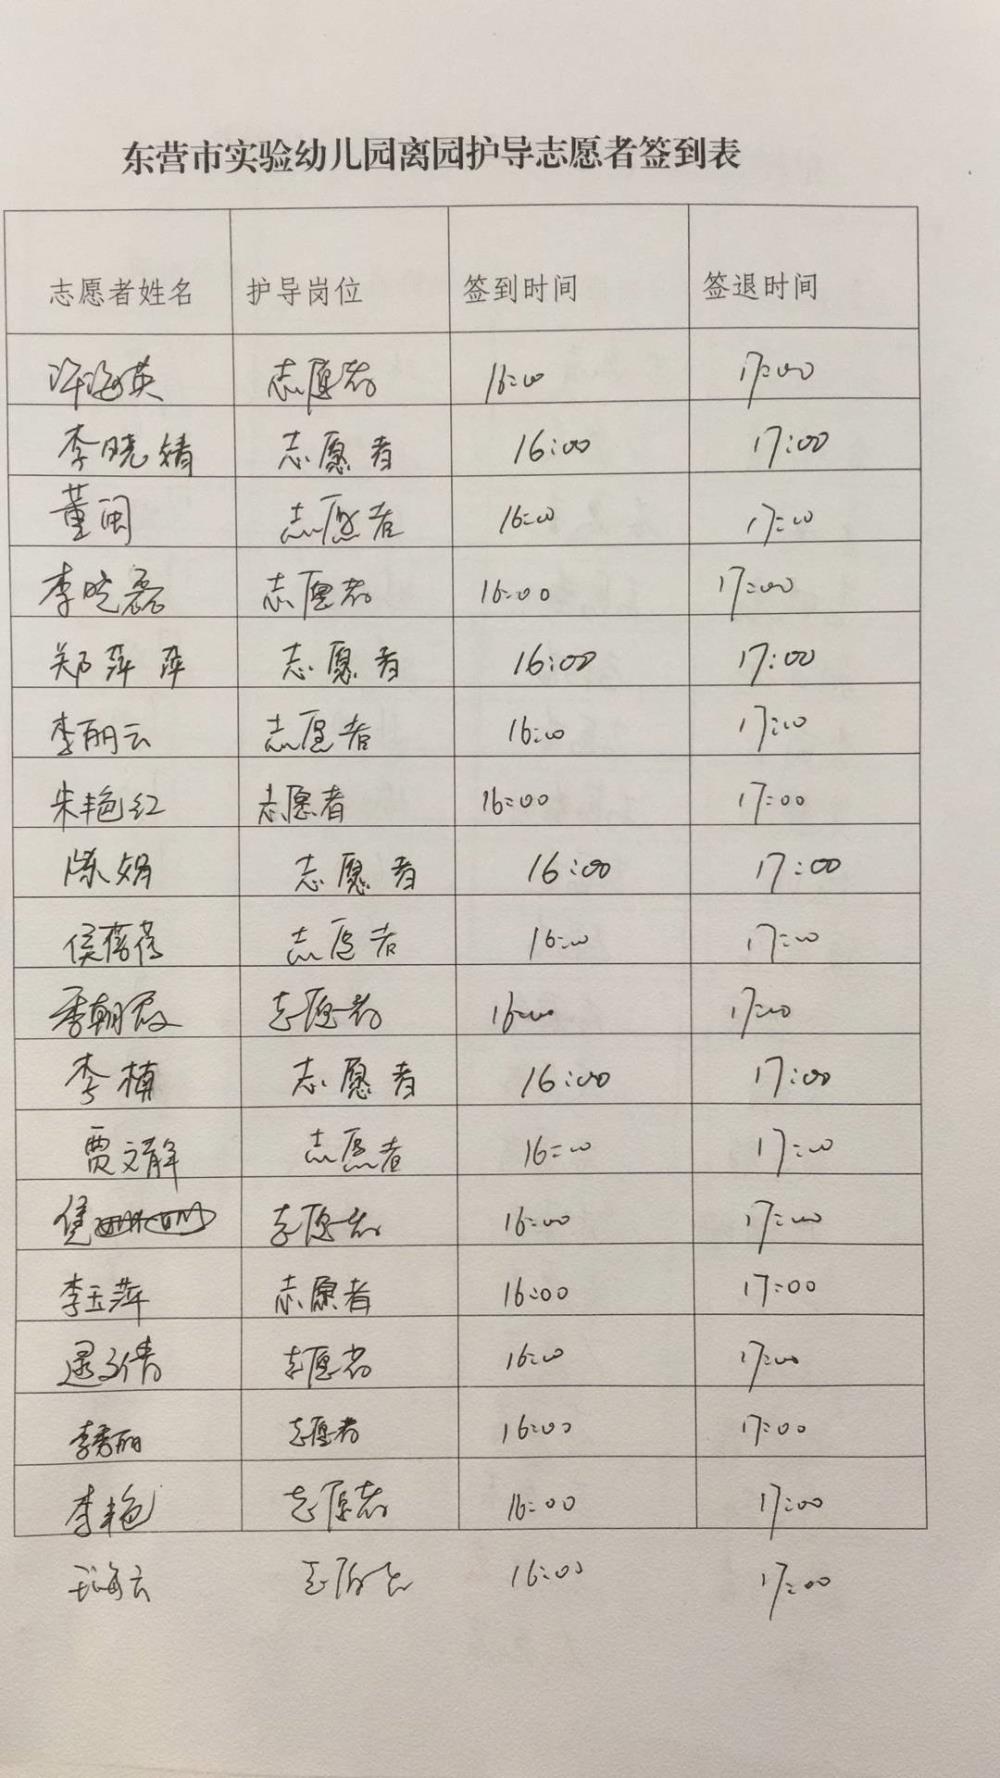 东营市实验幼儿园离园护导志愿者签到表
志愿者姓名 护导岗位 签到时间 签退时间
许海英 志愿者 16:00 17:00
李晓婧 志愿者 16:00 17:00
董闽 志愿者 16:00 17:00
李晓磊 志愿者 16:00 17:00
郑萍萍 志愿者 16:00 17:00
李丽云 志愿者 16:00 17:00
朱艳红 志愿者 16:00 17:00
陈娟 志愿者 16:00 17:00
侯蓓蓓 志愿者 16:00 17:00
季朝霞 志愿者 16:00 17:00
李楠 志愿者 16:00 17:00
贾文静 志愿者 16:00 17:00
志愿者 16:00 17:00
李玉萍 志愿者 16:00 17:00
逯倩 志愿者 16:00 17:00
李秀丽 志愿者 16:00 17:00
李艳 志愿者 16:00 17:00
王海云 志愿者 16:00 17:00